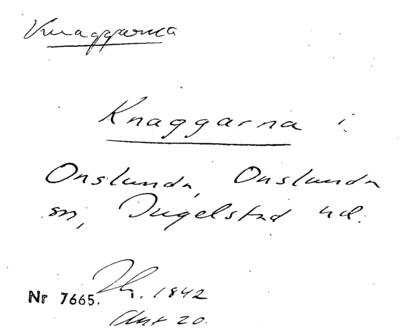 Knaggarna
Knaggarna i
Onslunda, Onslunda
sn, Ingelstad hd.
Nr 7665. 1842
20.